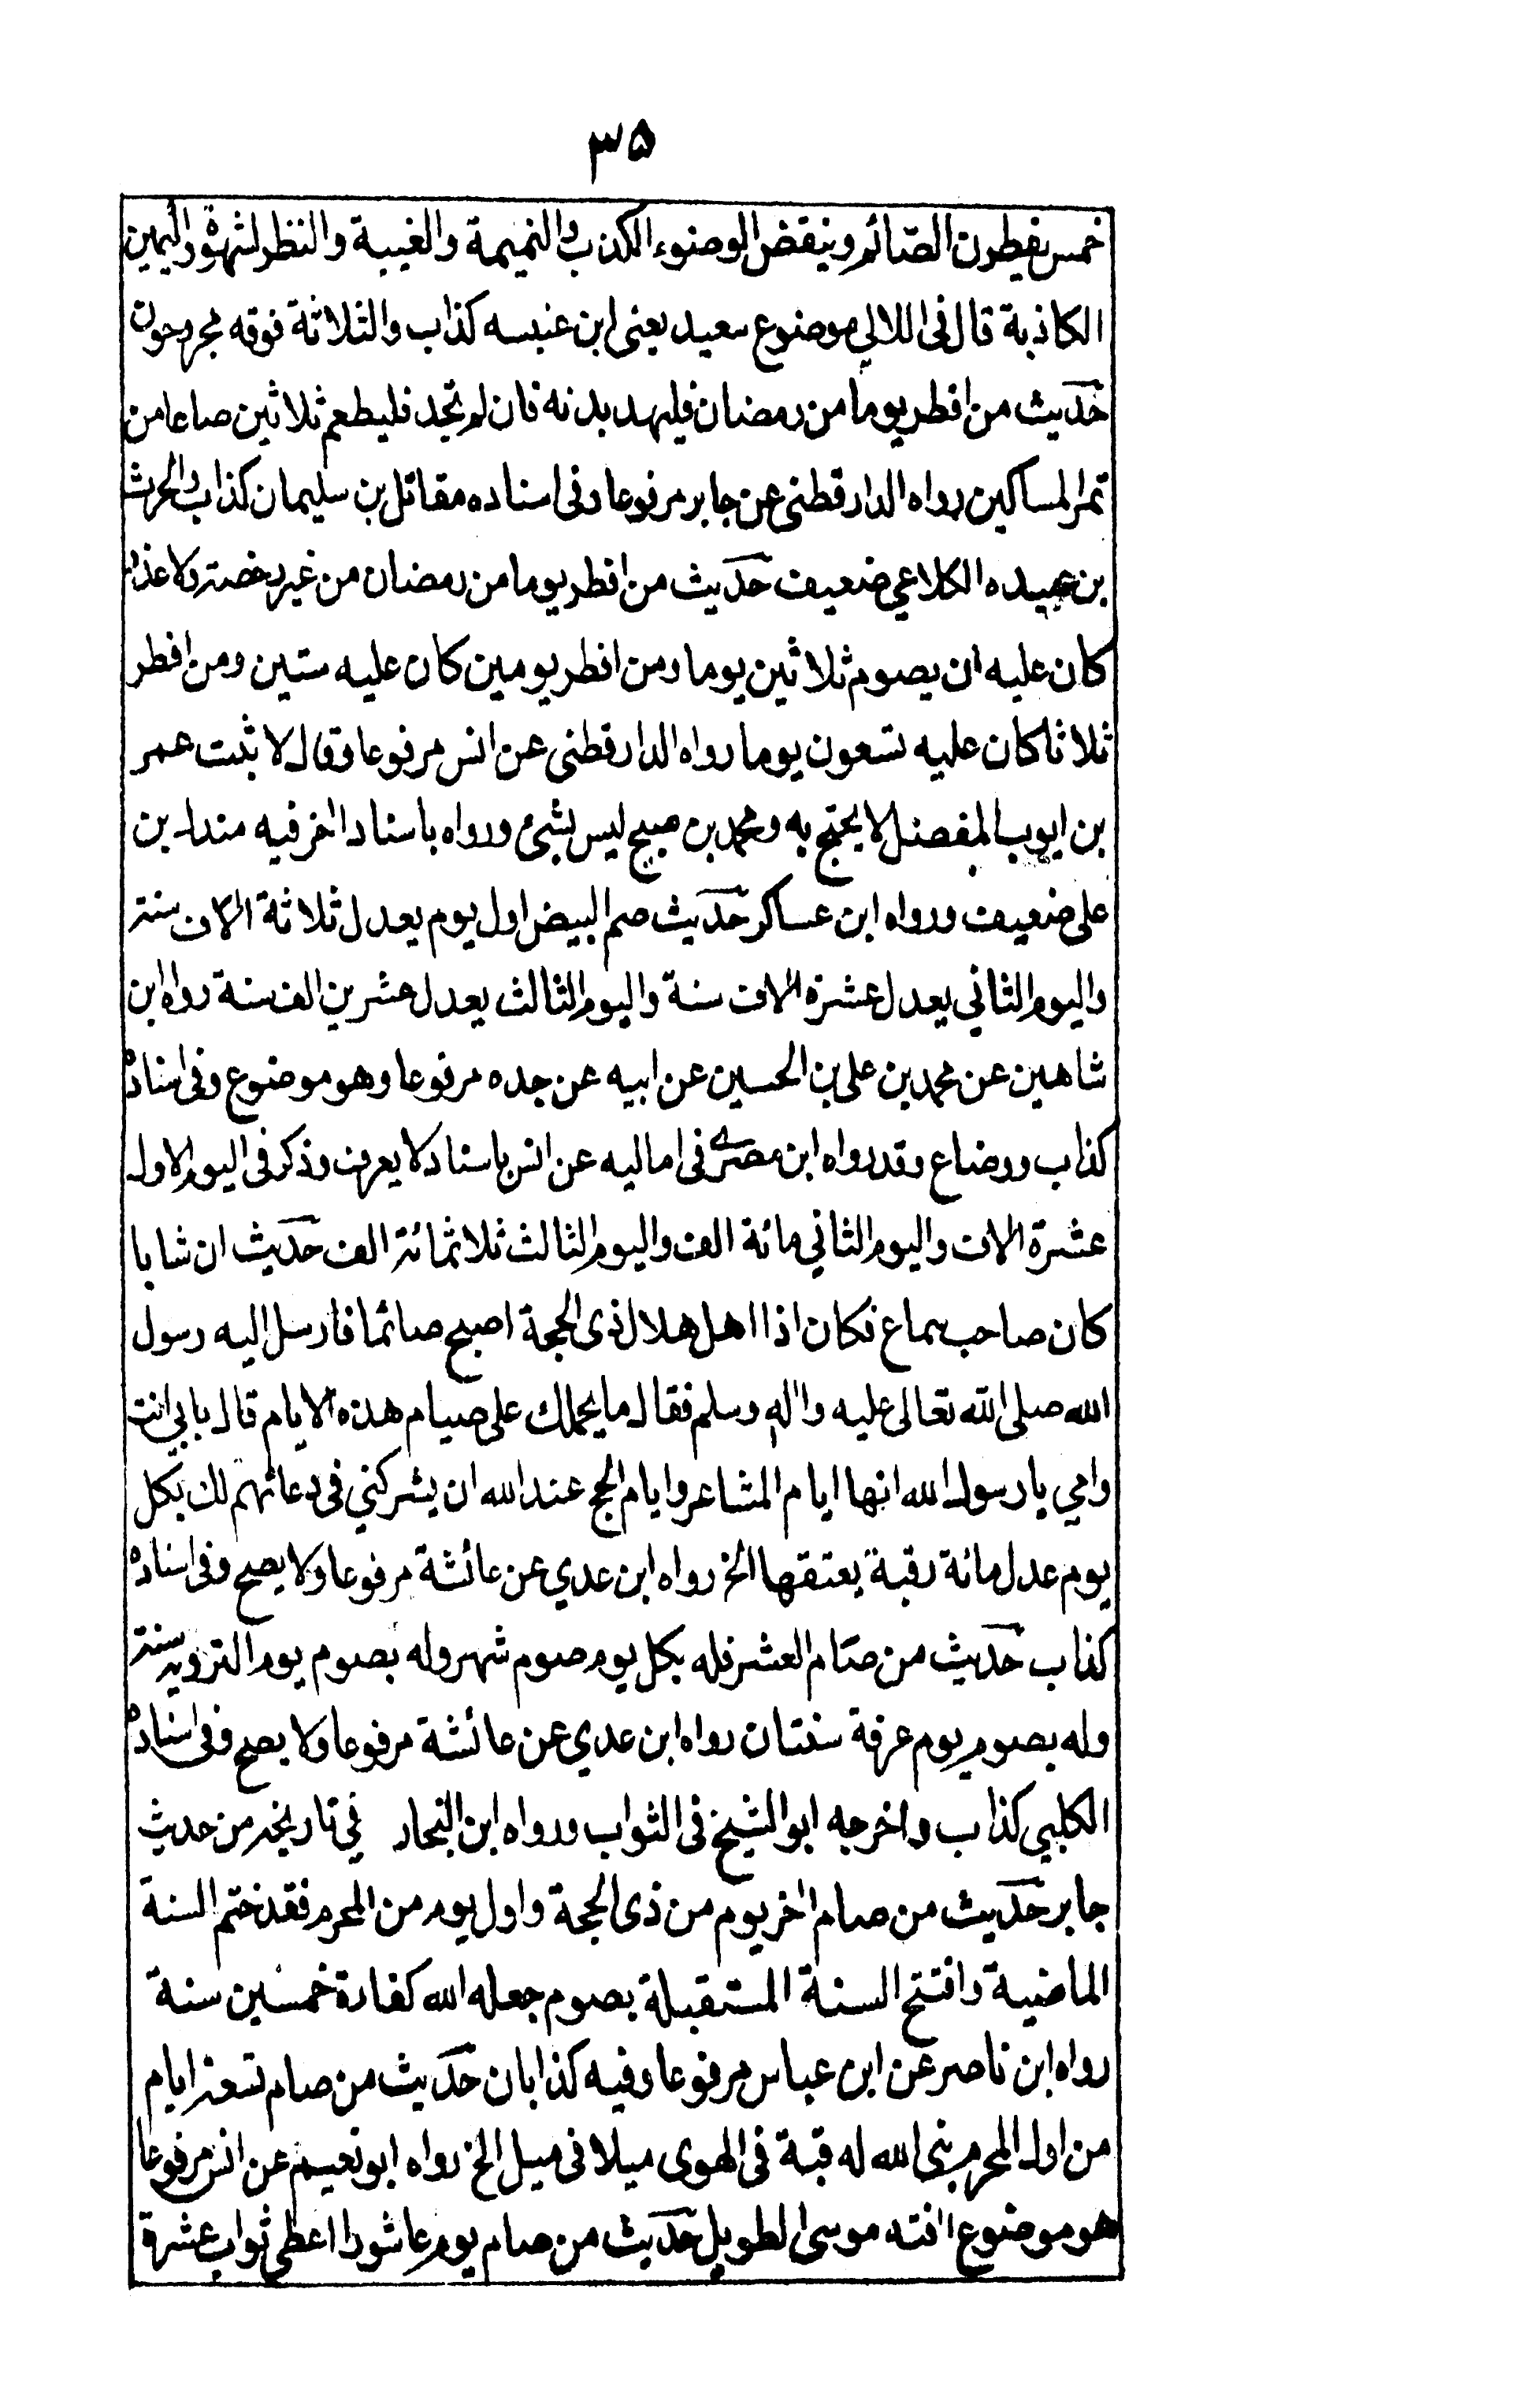 ۳۵
خمس يفطرن الصّائم وينقض الوضوء الكذب والنميمة والغيبة والنظر لشهوة واليمين
الكاذبة قال فى اللالي موضوع سعيد يعنى ابن عنبسه كذاب والثلاثة فوقه مجروحون
حديث من افطر يوما من رمضان فليهد بدنه فان لم يجد فليطعم ثلاثين صاعا من
تمر المساكين رواه الدارقطنى عن جابر مرفوعا وفى اسناده مقاتل بن سليمان كذاب والحرث
بن عبيده الكلاعي ضعيف حديث من افطر يوما من رمضان من غير رخصة ولا عذر
كان عليه ان يصوم ثلاثين يوما ومن افطر يومين كان عليه ستين ومن افطر
ثلاثا كان عليه تسعون يوما رواه الدارقطنى عن انس مرفوعا وقال لا يثبت عمر
بن ايوب المفصل لا يحتج به ومحمد بن صبيح ليس بشئ ورواه باسناد اخر فيه مندل بن
على ضعيف ورواه ابن عساكر حديث صم البيض اول يوم يعدل ثلاثة الاف سنة
واليوم الثاني يعدل عشرة الاف سنة واليوم الثالث يعدل عشرين الف سنة رواه ابن
شاهين عن محمد بن على بن الحسين عن ابيه عن جده مرفوعا وهو موضوع وفى اسناده
كذاب ووضاع وقد رواه ابن صصرى فى اماليه عن انس باسناد لا يعرف وذكر فى اليوم الاول
عشرة الاف واليوم الثاني مائة الف واليوم الثالث ثلاثمائة الف حديث ان شابا
كان صاحب سماع فكان اذا اهل هلال ذى الحجة اصبح صائما فارسل اليه رسول
الله صلى الله تعالى عليه واله وسلم فقال ما يحملك على صيام هذه الايام قال بابي انت
وامي يا رسول الله انها ايام المشاعر وايام الحج عند الله ان يشركني فى دعائهم لك بكل
يوم عدل مائة رقبة يعتقها الخ رواه ابن عدي عن عائشة مرفوعا ولا يصح وفى اسناده
كذاب حديث من صام العشر فله بكل يوم صوم شهر وله بصوم يوم التروية سنة
وله بصوم يوم عرفة سنتان رواه ابن عدي عن عائشة مرفوعا ولا يصح وفى اسناده
الكلبي كذاب واخرجه ابو الشيخ فى الثواب ورواه ابن النجار في تاريخه من حديث
جابر حديث من صام اخر يوم من ذى الحجة واول يوم من المحرم فقد ختم السنة
الماضية وافتتح السنة المستقبلة بصوم جعله الله كفارة خمسين سنة
رواه ابن ناصر عن ابن عباس مرفوعا وفيه كذابان حديث من صام تسعة ايام
من اول المحرم بنى الله له قبة فى الهوى ميلا فى ميل الخ رواه ابو نعيم عن انس مرفوعا
هو موضوع افته موسى الطويل حديث من صام يوم عاشورا اعطى ثواب عشرة